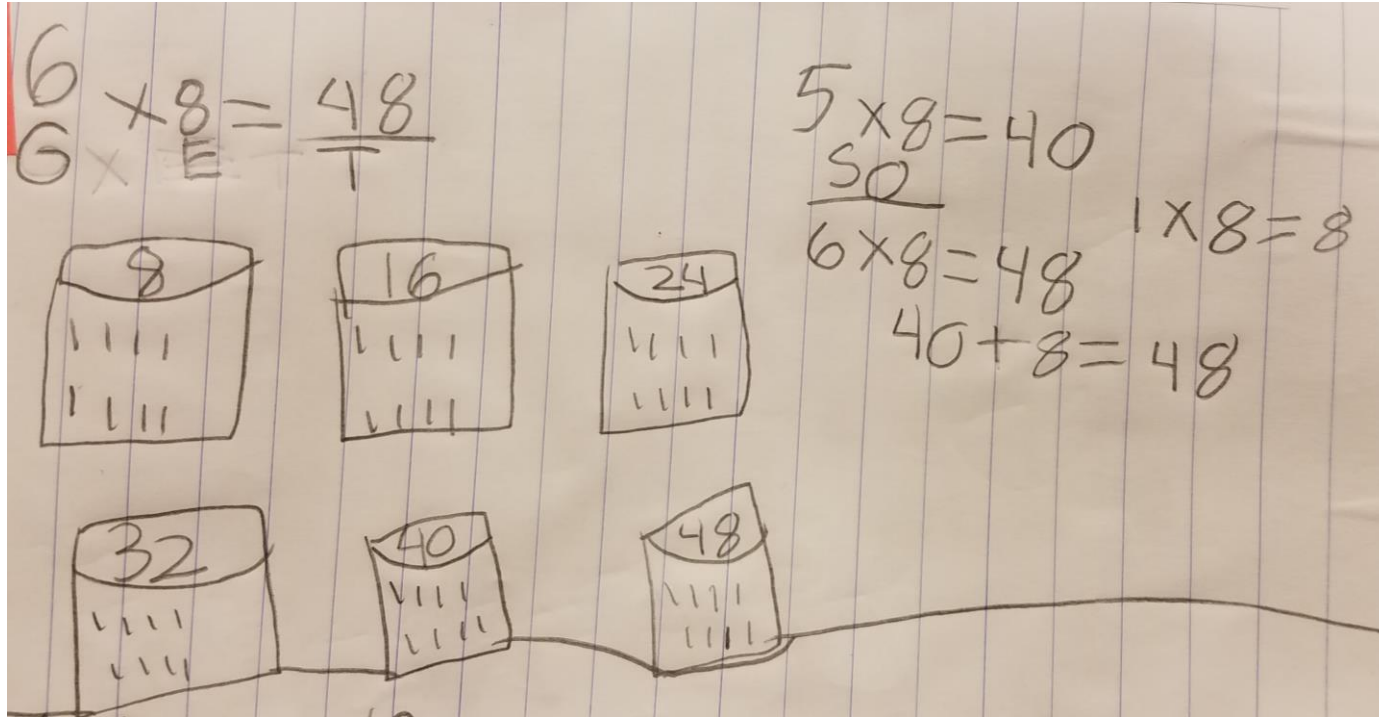 6 × 8 = 48
G × E T
8 16 24
32 40 48
5 × 8 = 40
SO
1 × 8 = 8
6 × 8 = 48
40 + 8 = 48